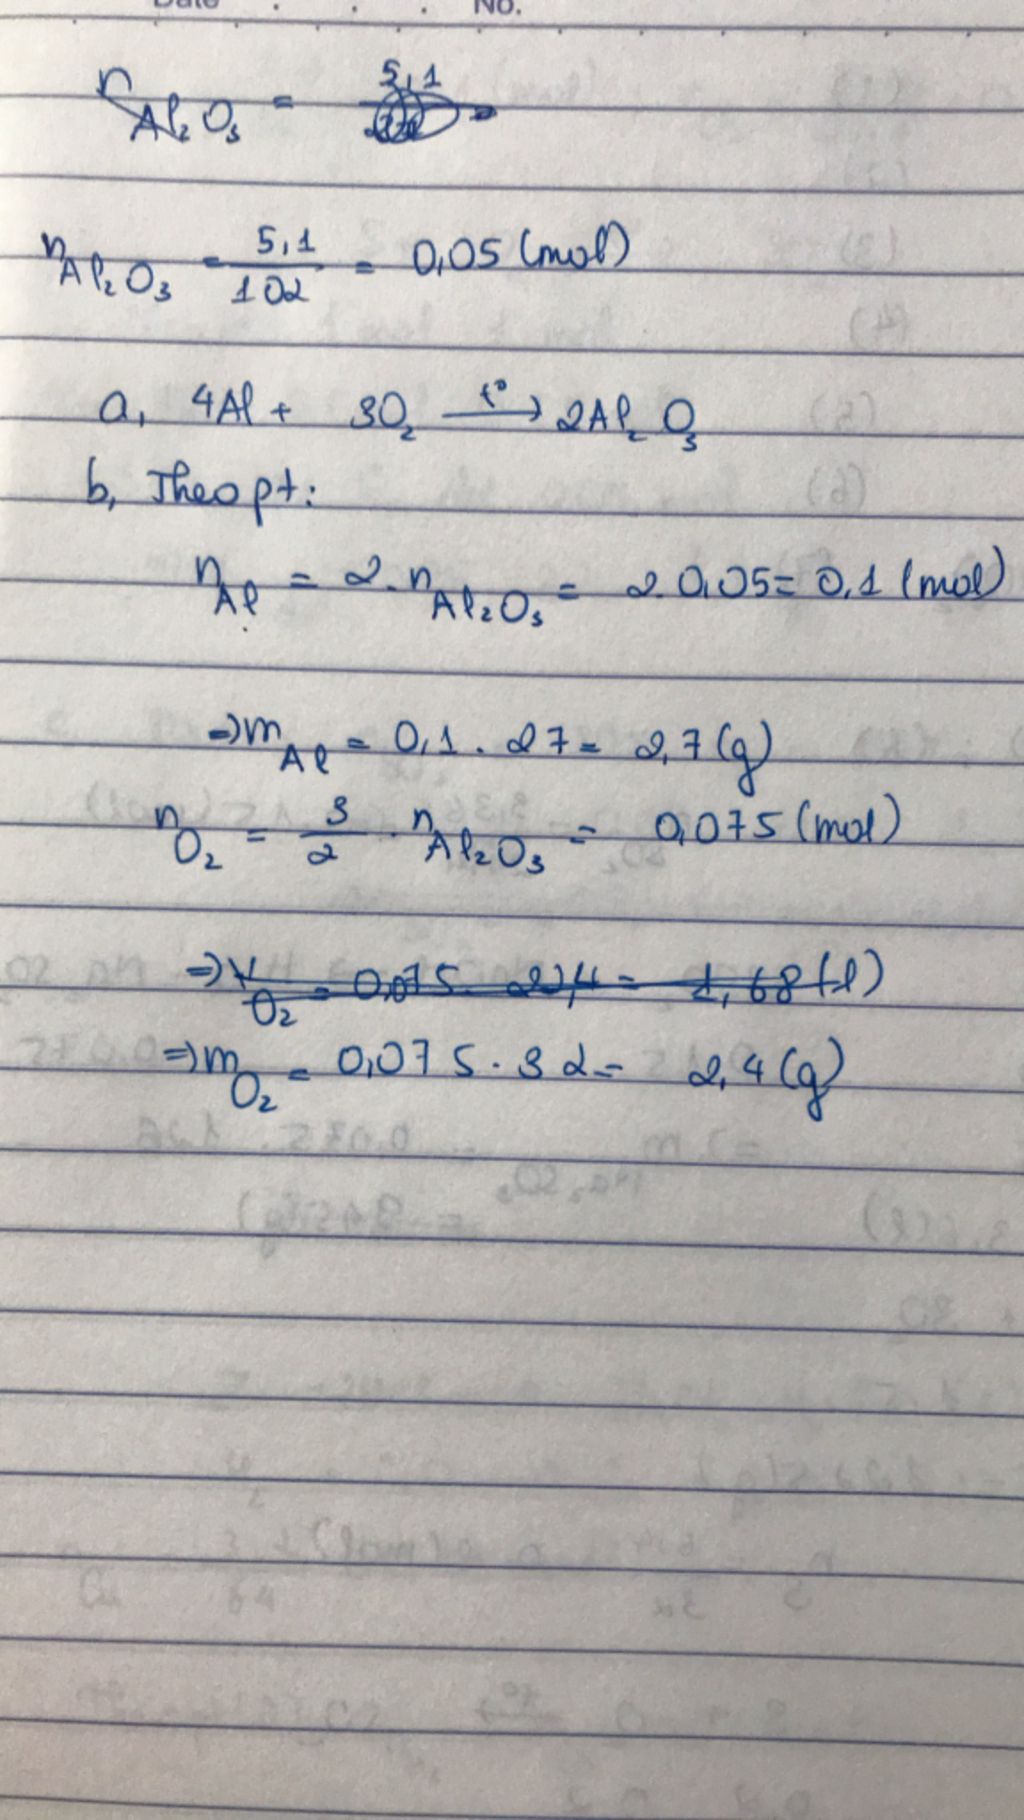 Date No.
n Al₂O₃ = 5,1
n Al₂O₃ = 5,1/102 = 0,05 (mol)
a, 4Al + 3O₂ —t°→ 2Al₂O₃
b, Theo pt:
n Al = 2. n Al₂O₃ = 2. 0,05 = 0,1 (mol)
=> m Al = 0,1 . 27 = 2,7 (g)
n O₂ = 3/2 . n Al₂O₃ = 0,075 (mol)
=> V O₂ = 0,075. 22,4 = 1,68 (l)
=> m O₂ = 0,075 . 32 = 2,4 (g)